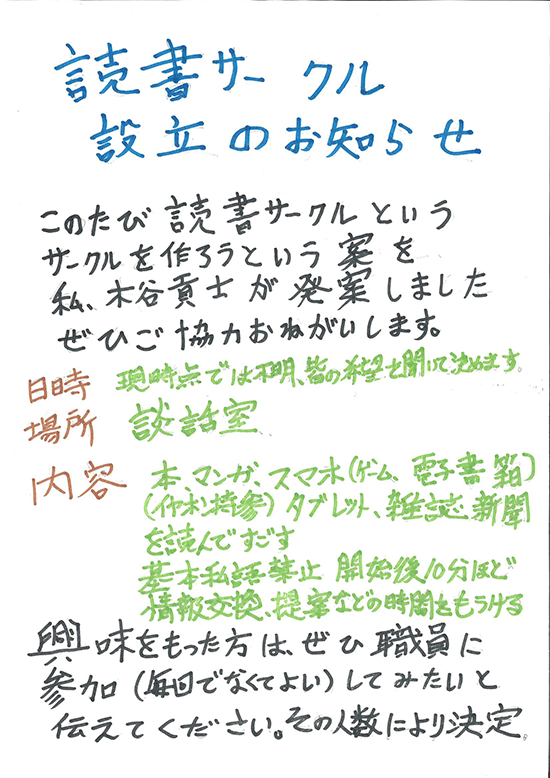 読書サークル
設立のお知らせ
このたび読書サークルという
サークルを作ろうという案を
私、木谷貢士が発案しました
ぜひご協力おねがいします。
日時 現時点では不明、皆の希望を聞いて決めます。
場所 談話室
内容 本、マンガ、スマホ(ゲーム、電子書籍)
(イヤホン持参) タブレット、雑誌、新聞
を読んですごす
基本私語禁止 開始後10分ほど
情報交換、提案などの時間をもうける
興味をもった方は、ぜひ職員に
参加(毎回でなくてよい)してみたいと
伝えてください。その人数により決定。